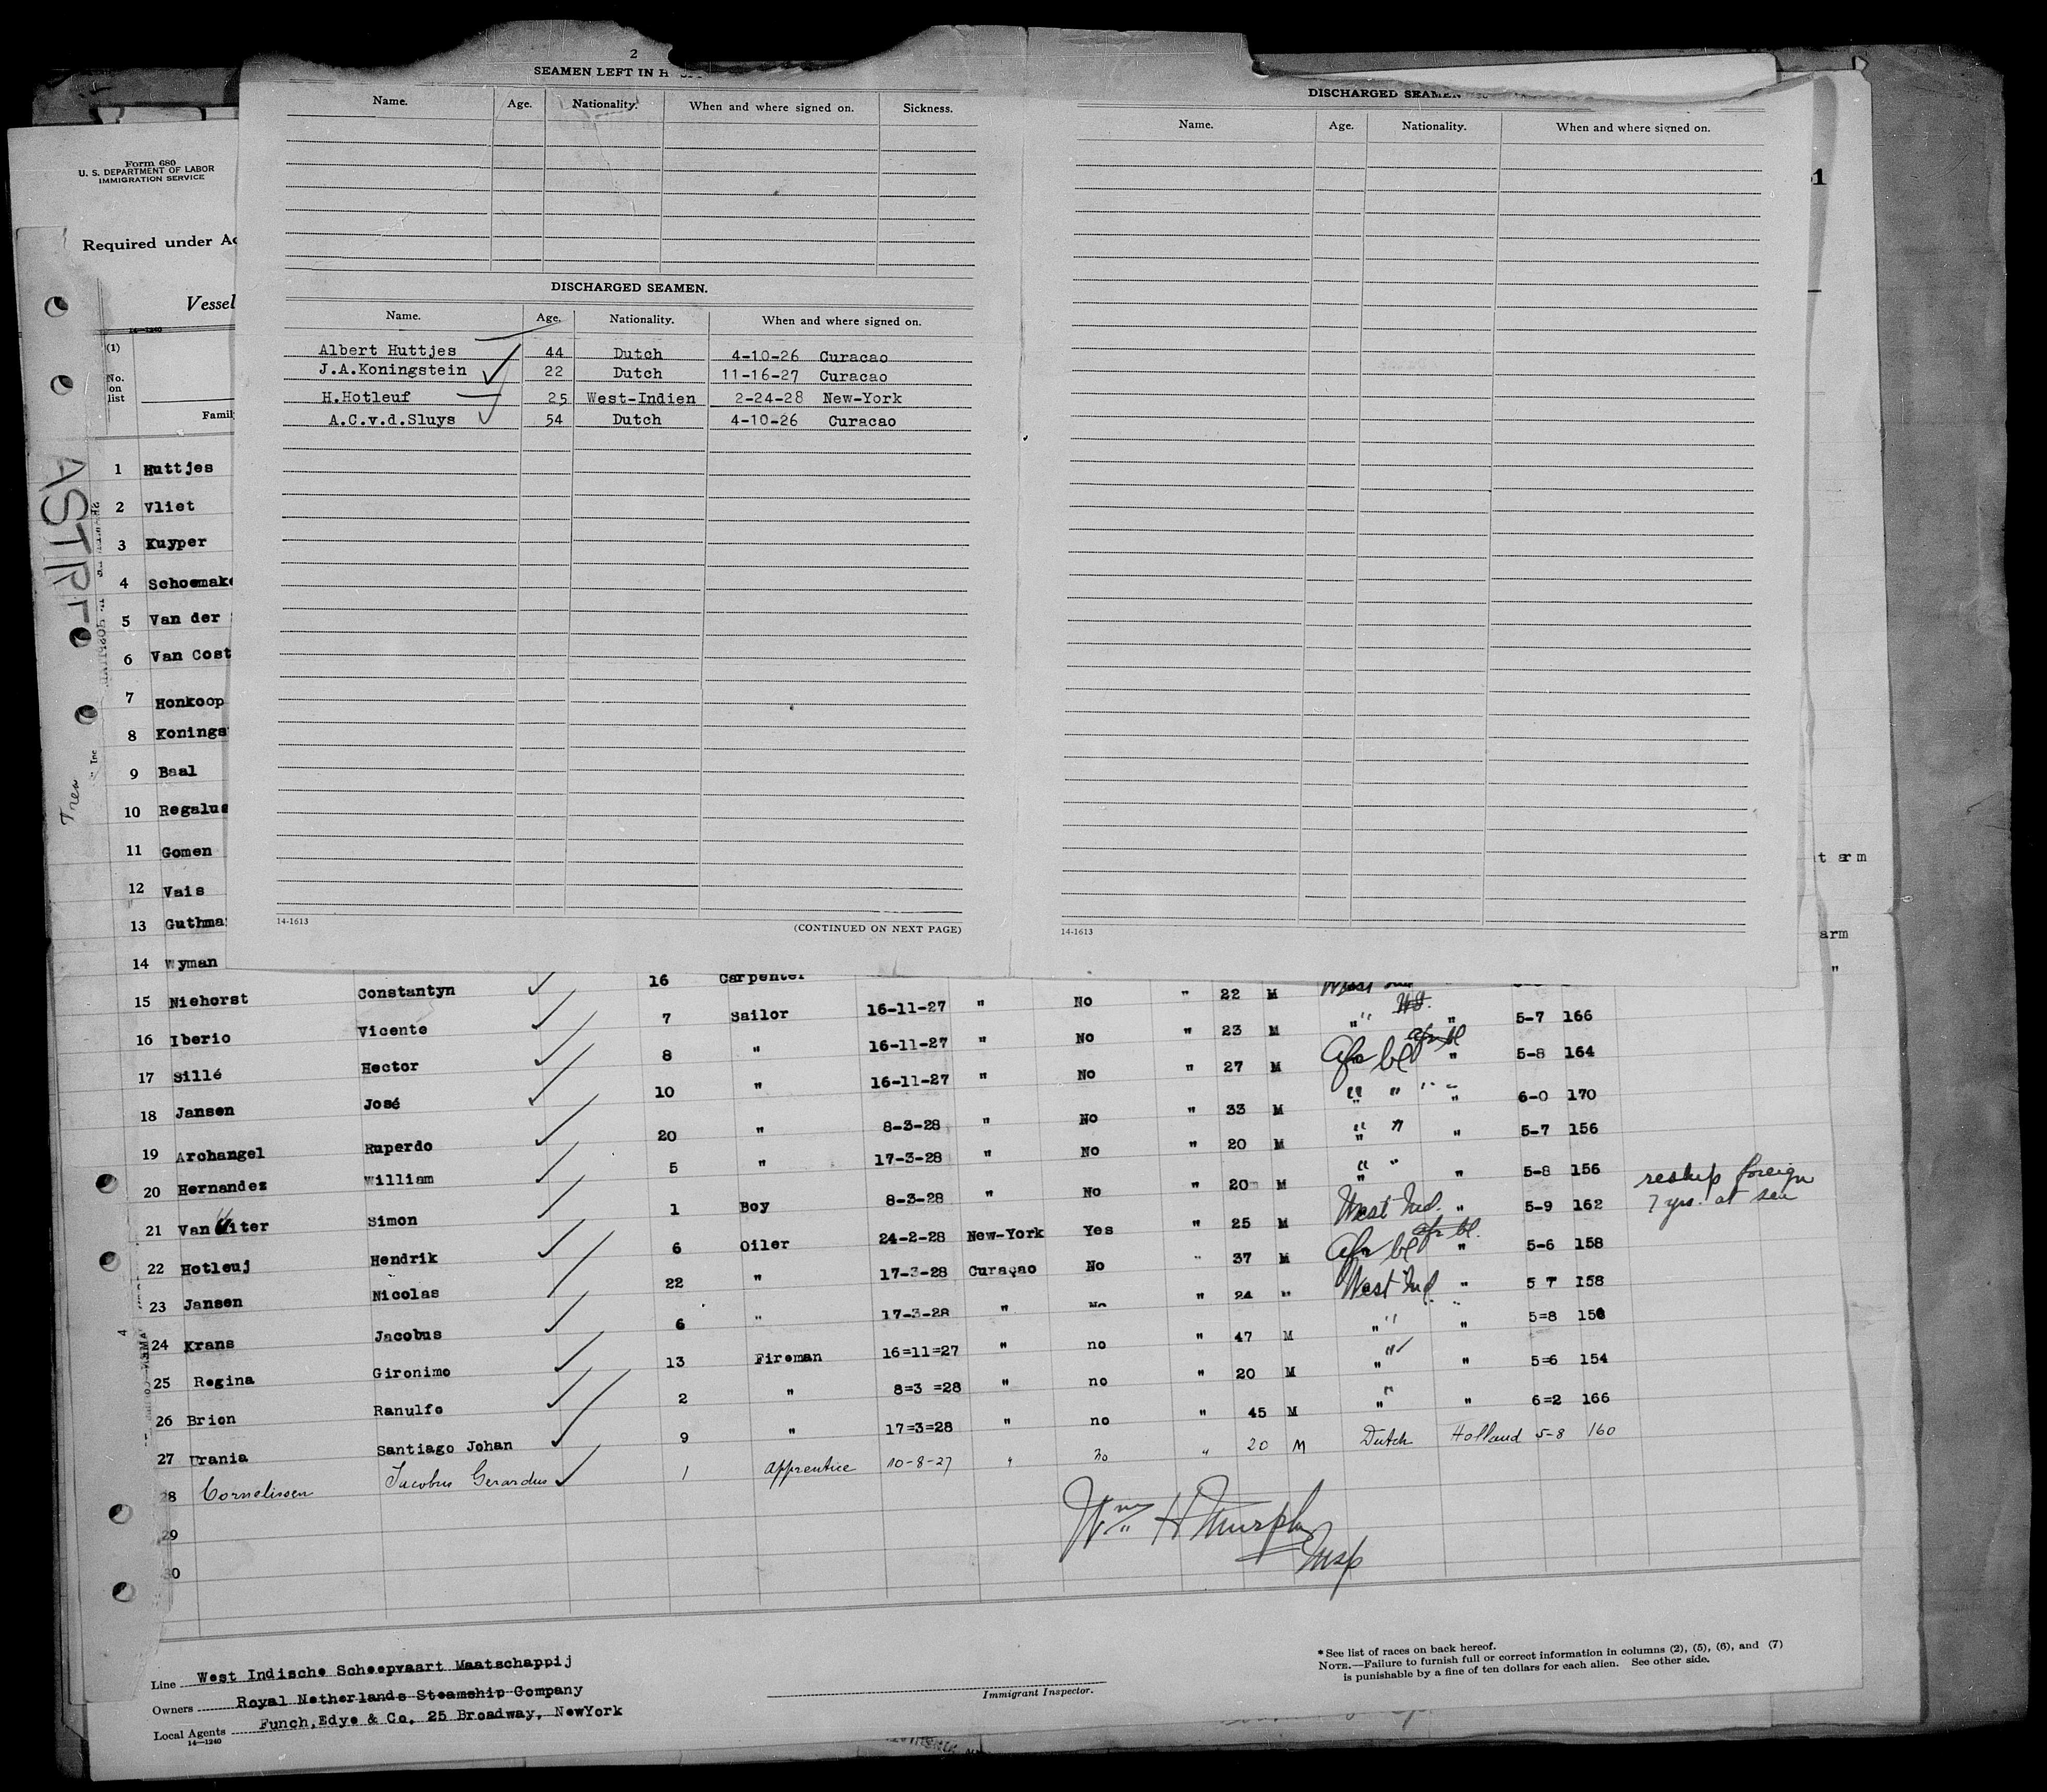 2
SEAMEN LEFT IN
Name. Age. Nationality. When and where signed on. Sickness.
DISCHARGED SEAMEN.
Name. Age. Nationality. When and where signed on.
Albert Huttjes 44 Dutch 4-10-26 Curacao
J.A.Koningstein 22 Dutch 11-16-27 Curacao
H.Hotleuf 25 West-Indien 2-24-28 New-York
A.C.v.d.Sluys 54 Dutch 4-10-26 Curacao
14-1613 (CONTINUED ON NEXT PAGE)
DISCHARGED SEAMEN
Name. Age. Nationality. When and where signed on.
14-1613
Form 680
U. S. DEPARTMENT OF LABOR
IMMIGRATION SERVICE
Required under
Vessel
14-1240
(1)
No.
on
list
ASTR
1 Huttjes
2 Vliet
3 Kuyper
4 Schoemake
5 Van der
6 Van Cost
7 Honkoop
8 Konings
9 Baal
10 Regalus
11 Gomen
12 Vais
13 Guthma
14 Wyman
arm
"
15 Niehorst Constantyn 16 Carpenter
16 Iberio Vicente 7 Sailor 16-11-27 " No " 22 M West Ind
17 Sillé Hector 8 " 16-11-27 " No " 23 M " " 5-7 166
18 Jansen José 10 " 16-11-27 " No " 27 M Afr bl " 5-8 164
19 Archangel Ruperdo 20 " 8-3-28 " No " 33 M " " " 6-0 170
20 Hernandez William 5 " 17-3-28 " No " 20 M " " " 5-7 156
21 Van Uiter Simon 1 Boy 8-3-28 " No " 20 M " " " 5-8 156
22 Hotleuj Hendrik 6 Oiler 24-2-28 New-York Yes " 25 M West Ind. " 5-9 162 reship foreign
7 yrs. at sea
23 Jansen Nicolas 22 " 17-3-28 Curaçao No " 37 M Afr bl afr bl. " 5-6 158
24 Krans Jacobus 6 " 17-3-28 " No " 24 " West Ind " 5 7 158
25 Regina Gironimo 13 Fireman 16=11=27 " no " 47 M " " 5=8 158
26 Brion Ranulfo 2 " 8=3 =28 " no " 20 M " " 5=6 154
27 Urania Santiago Johan 9 " 17=3=28 " no " 45 M " " 6=2 166
28 Cornelissen Jacobus Gerardus 1 Apprentice 10-8-27 " no " 20 M Dutch Holland 5-8 160
29
30
Wm H Murphy
Insp
Line West Indische Scheepvaart Maatschappij
Owners Royal Netherlands Steamship Company
Local Agents Funch,Edye & Co, 25 Broadway, NewYork
14-1240
Immigrant Inspector.
*See list of races on back hereof.
NOTE.—Failure to furnish full or correct information in columns (2), (5), (6), and (7)
is punishable by a fine of ten dollars for each alien. See other side.